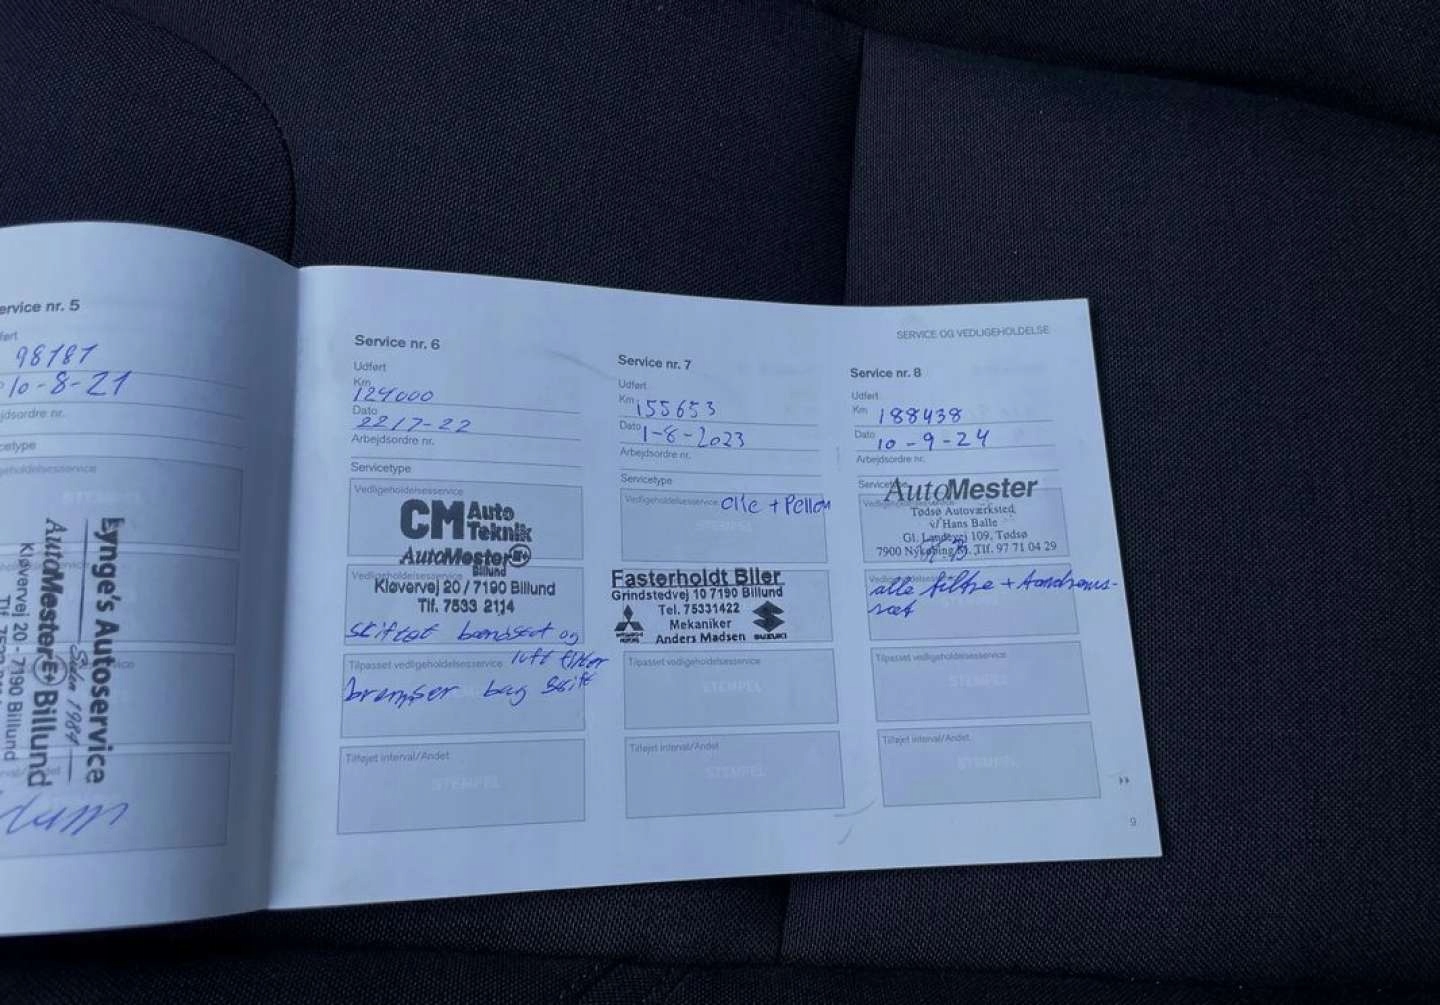 ervice nr. 5
98181
10-8-21
jdsordre nr.
cetype
Lynge's Autoservice
Siden 1984
AutoMester E+ Billund
Kløvervej 20 - 7190 Billund
Service nr. 6
Udført
Km 124000
Dato 22/7-22
Arbejdsordre nr.
Servicetype
Vedligeholdelsesservice
CM Auto Teknik
AutoMester E+
Billund
Vedligeholdelsesservice
Kløvervej 20 / 7190 Billund
Tlf. 7533 2114
skiftet og
Tilpasset vedligeholdelsesservice luft filter
bremser bag skift
Tilføjet interval/Andet
STEMPEL
Service nr. 7
Udført
Km 155653
Dato 1-8-2023
Arbejdsordre nr.
Servicetype
Vedligeholdelsesservice olie + Pollen
STEMPEL
Fasterholdt Biler
Grindstedvej 10 7190 Billund
Tel. 75331422
Mekaniker
Anders Madsen
MITSUBISHI MOTORS
SUZUKI
Tilpasset vedligeholdelsesservice
STEMPEL
Tilføjet interval/Andet
STEMPEL
SERVICE OG VEDLIGEHOLDELSE
Service nr. 8
Udført
Km 188438
Dato 10-9-24
Arbejdsordre nr.
Servicetype
AutoMester
Tødsø Autoværksted
v/ Hans Balle
Gl. Landevej 109, Tødsø
7900 Nykøbing M. Tlf. 97 71 04 29
alle filtre + tandrems-
sæt
Tilpasset vedligeholdelsesservice
STEMPEL
Tilføjet interval/Andet
STEMPEL
9